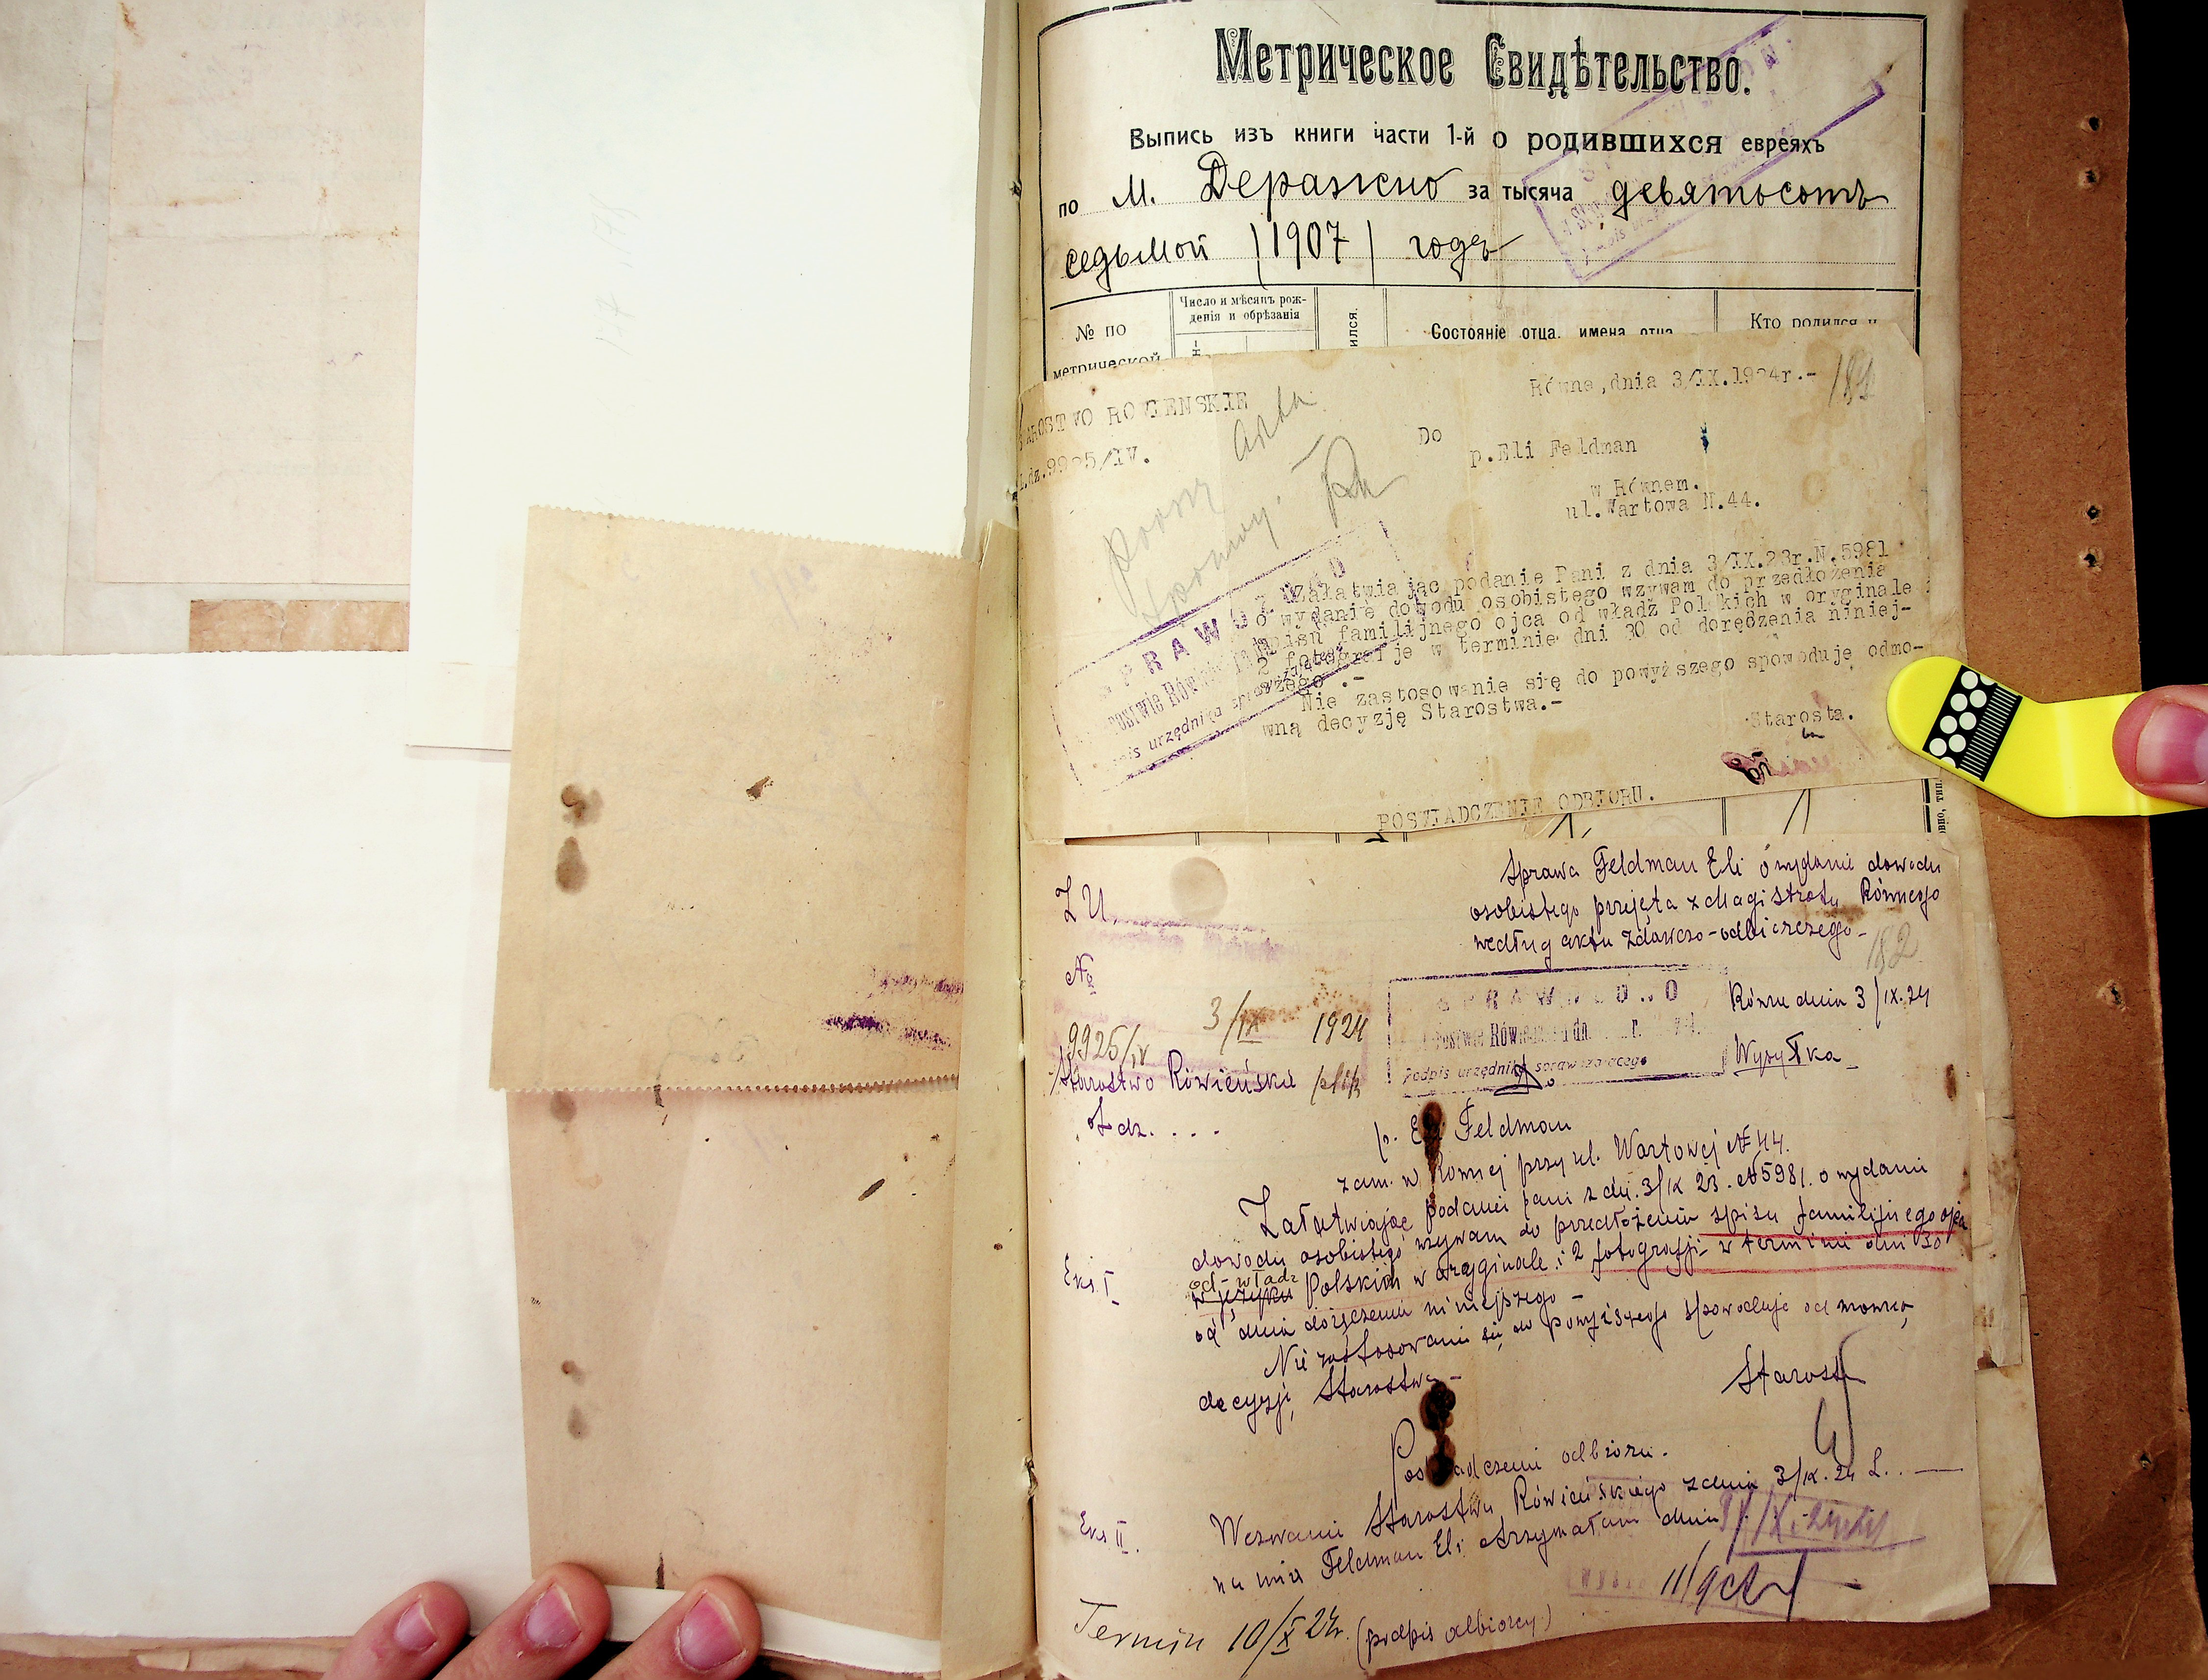 Метрическое Свидѣтельство.
Выпись изъ книги части 1-й о родившихся евреяхъ
по м. Деражно за тысяча девятьсотъ
седьмой (1907) годъ
№ по
метрической
Число и мѣсяцъ рож-
денія и обрѣзанія
Состояніе отца, имена отца
Кто родился и
STAROSTWO ROWIENSKIE
L.dz.9925/IV.
Równe, dnia 3/IX.1924r.-
Do
p.Eli Feldman
w Równem.
ul.Wartowa N.44.
Załatwiając podanie Pani z dnia 3/IX.23r.N.5981
o wydanie dowodu osobistego wzywam do przedłożenia
spisu familijnego ojca od władz Polskich w oryginale i
2 fotografje w terminie dni 30 od doręczenia niniej-
szego.-
Nie zastosowanie się do powyższego spowoduje odmo-
wną decyzję Starostwa.-
Starosta.
POSWIADCZENIE ODBIORU.
Sprawa Feldman Eli o wydanie dowodu
osobistego przejęta z Magistratu Równego
według aktu zdawczo-odbiorczego-
182
Z U.
№
3/IX 1924
9925/IV
Starostwo Rówieńskie
L dz. . . .
Podpis urzędnika sprawdzającego
Równe dnia 3/IX.24
Wysyłka
p. Eli Feldman
zam. w Równej przy ul. Wartowej № 44.
Załatwiając podanie pani z dn. 3/IX 23. №5981. o wydanie
dowodu osobistego wzywam do przedłożenia spisu familijnego ojca
od władz
w języku Polskich w oryginale i 2 fotografji w terminie dni 30
od dnia doręczenia niniejszego-
Nie zastosowanie się do powyższego spowoduje odmowną
decyzję Starostwa-
Starosta
Eks. I
Poświadczenie odbioru.
Eks II.
Wezwanie Starostwa Rówieńskiego z dnia 3/IX.24 L..
na imię Feldman Eli otrzymałam dnia
Termin 10/X 24r. (podpis odbiorcy)